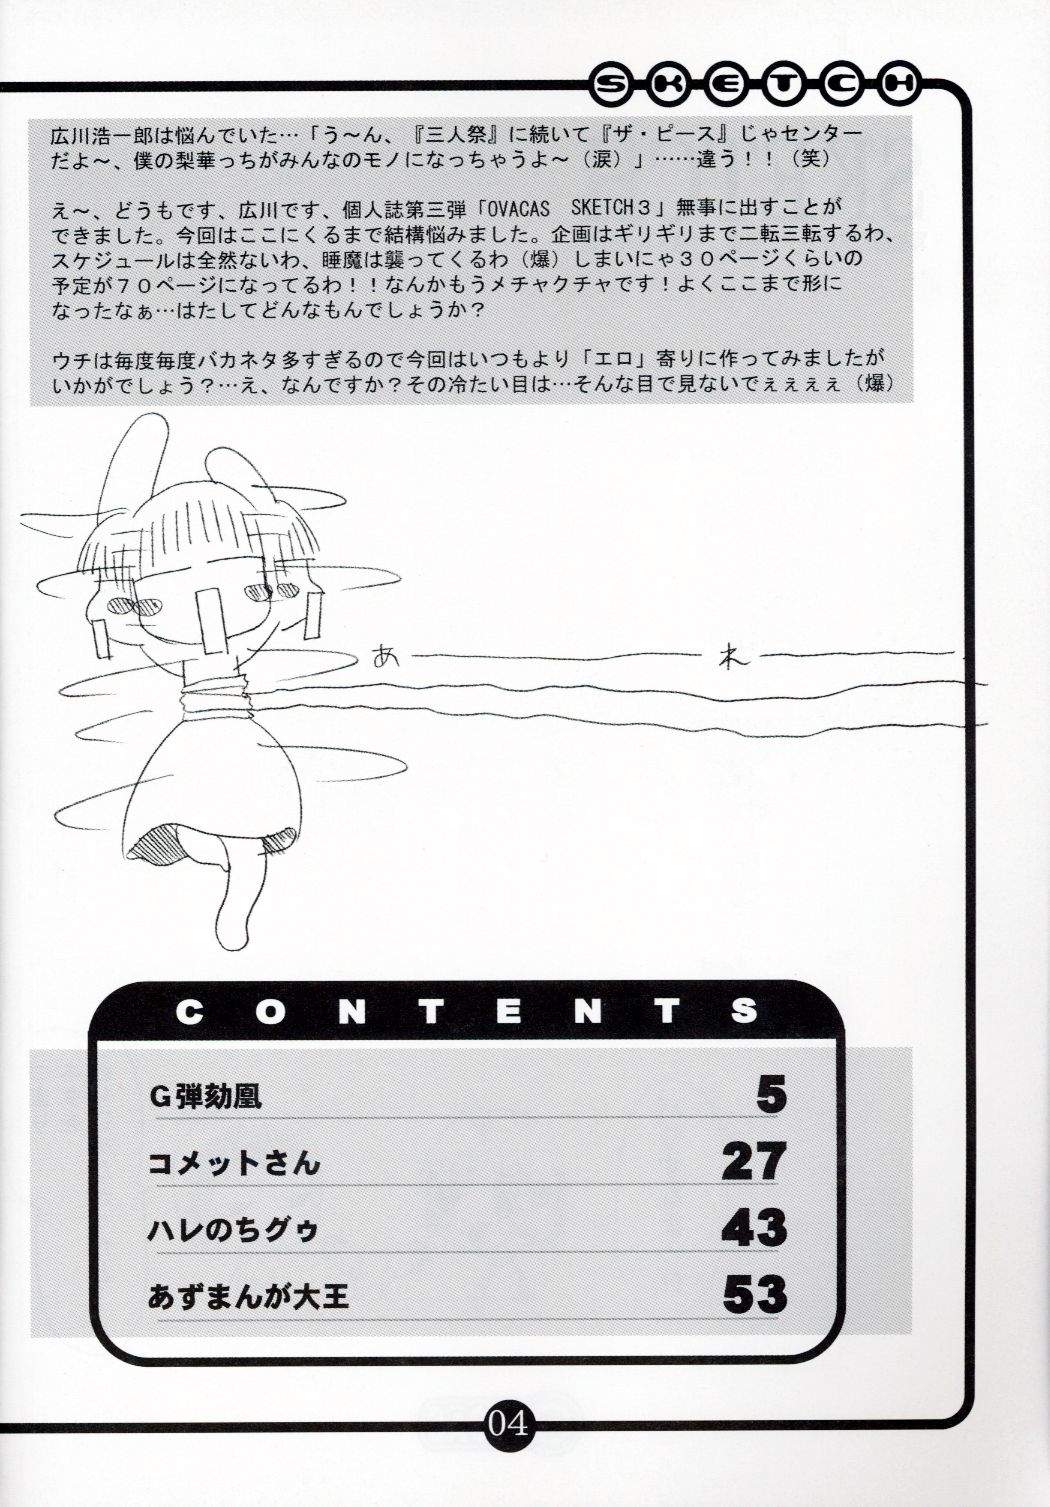 SKETCH
広川浩一郎は悩んでいた…「う～ん、『三人祭』に続いて『ザ・ピース』じゃセンター
だよ～、僕の梨華っちがみんなのモノになっちゃうよ～（涙）」……違う！！（笑）
え～、どうもです、広川です、個人誌第三弾「OVACAS SKETCH３」無事に出すことが
できました。今回はここにくるまで結構悩みました。企画はギリギリまで二転三転するわ、
スケジュールは全然ないわ、睡魔は襲ってくるわ（爆）しまいにゃ３０ページくらいの
予定が７０ページになってるわ！！なんかもうメチャクチャです！よくここまで形に
なったなぁ…はたしてどんなもんでしょうか？
ウチは毎度毎度バカネタ多すぎるので今回はいつもより「エロ」寄りに作ってみましたが
いかがでしょう？…え、なんですか？その冷たい目は…そんな目で見ないでぇぇぇぇ（爆）
あ――れ――
CONTENTS
Ｇ弾劾凰 5
コメットさん 27
ハレのちグゥ 43
あずまんが大王 53
04